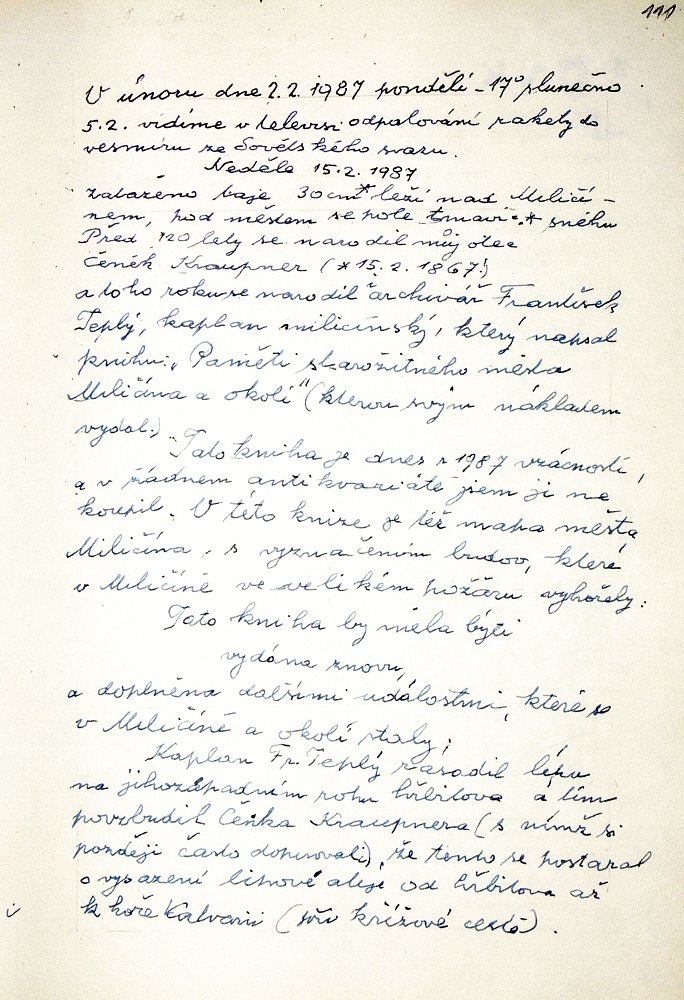 111
V únoru dne 2.2. 1987 pondělí - 17° slunečno
5.2. vidíme v televisi odpalování rakety do
vesmíru ze Sovětského svazu.
Neděle 15.2. 1987
zataženo leží nad Miličí-
nem, pod městem se pole sněhu
Před 120 lety se narodil můj otec
Čeněk Kraupner (* 15. 2. 1867!)
a toho roku se narodil archivář František
Teplý, kaplan miličínský, který napsal
knihu: „Paměti starožitného města
Miličína a okolí" (kterou svým nákladem
vydal.)
Tato kniha je dnes r 1987 vzácností,
a v žádném antikvariátě jsem ji ne
koupil. V této knize je též mapa města
Miličína, s vyznačením budov, které
v Miličíně ve velikém požáru vyhořely.
Tato kniha by měla býti
vydána znovu,
a doplněna dalšími událostmi, které se
v Miličíně a okolí staly;
Kaplan Fr. Teplý zasadil lípu
na jihozápadním rohu hřbitova a tím
povzbudil Čeňka Kraupnera (s nímž si
později často dopisovali), že tento se postaral
o vysazení lipové aleje od hřbitova až
k hoře Kalvarii (při křížové cestě).